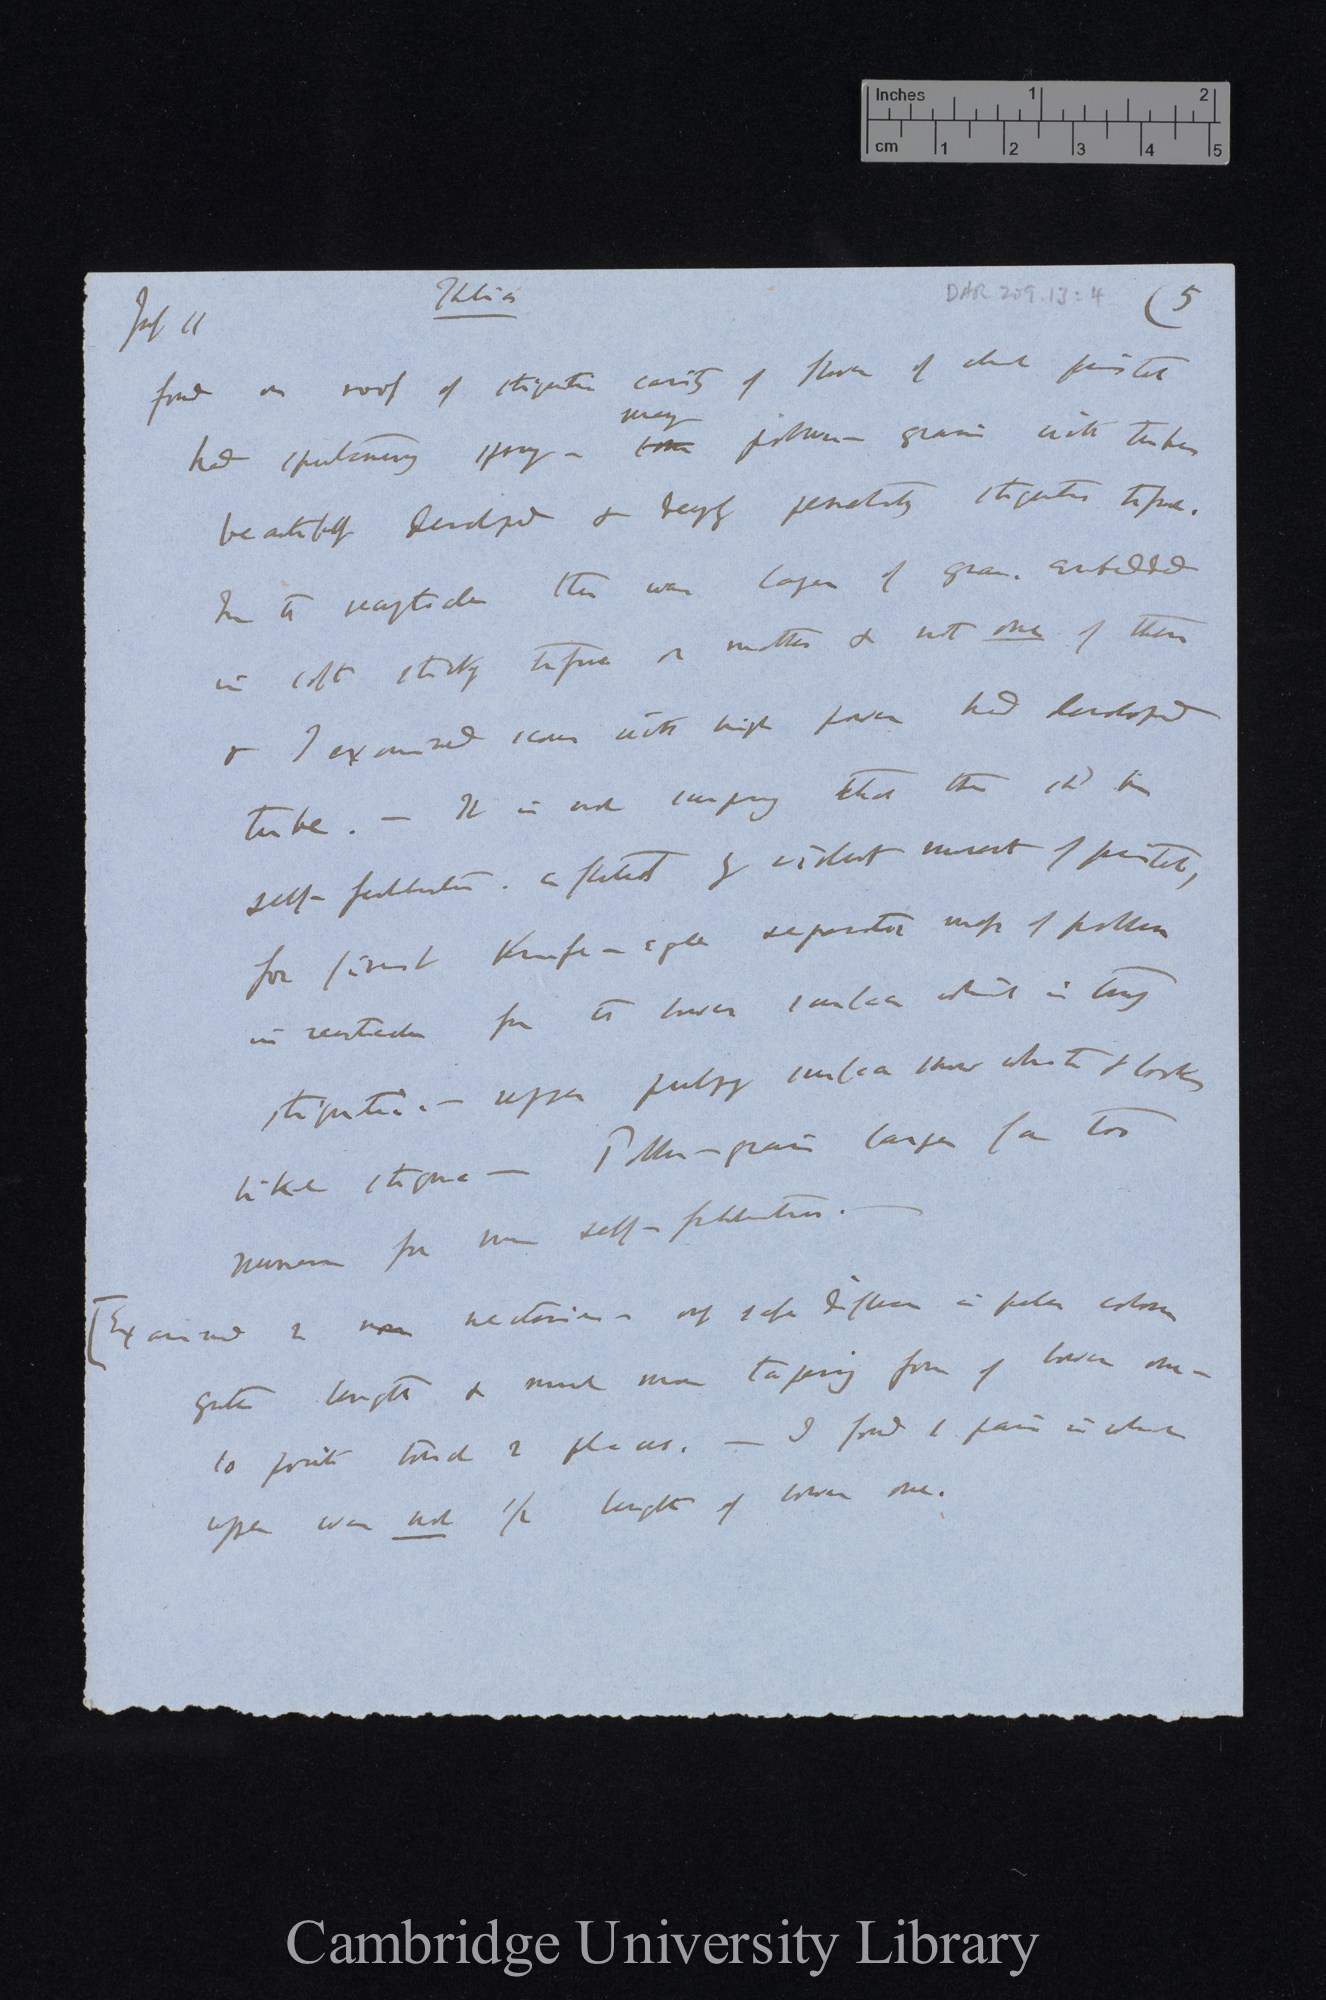 Inches 1 2
cm 1 2 3 4 5
DAR 209.13:4
(5
July 11
Thalia
found on roof of stigmatic cavity of flower of which pistil
many
had spontaneously sprung — some pollen-grains with tubes
beautifully developed & deeply penetrating stigmatic tissue.
In the receptacle there was layer of grains embedded
in soft sticky tissue or matter & not one of them
& I examined scores with high power had developed
tube. — It is not surprising that there shd be
self-fertilisation. as by violent movement of pistil,
for Knife-edge separates mass of pollen
in receptacle from the lower surface which is truly
stigmatic. — upper pulpy surface snow white & looks
like stigma — Pollen-grains larger far too
numerous for mere self-fertilisation. —
[Examined 2 more nectaries — differ in colour
greater length & much more tapering form of lower one —
to points 2 places. — I found 1 pair in which
upper was not 1/2 length of lower one.
Cambridge University Library